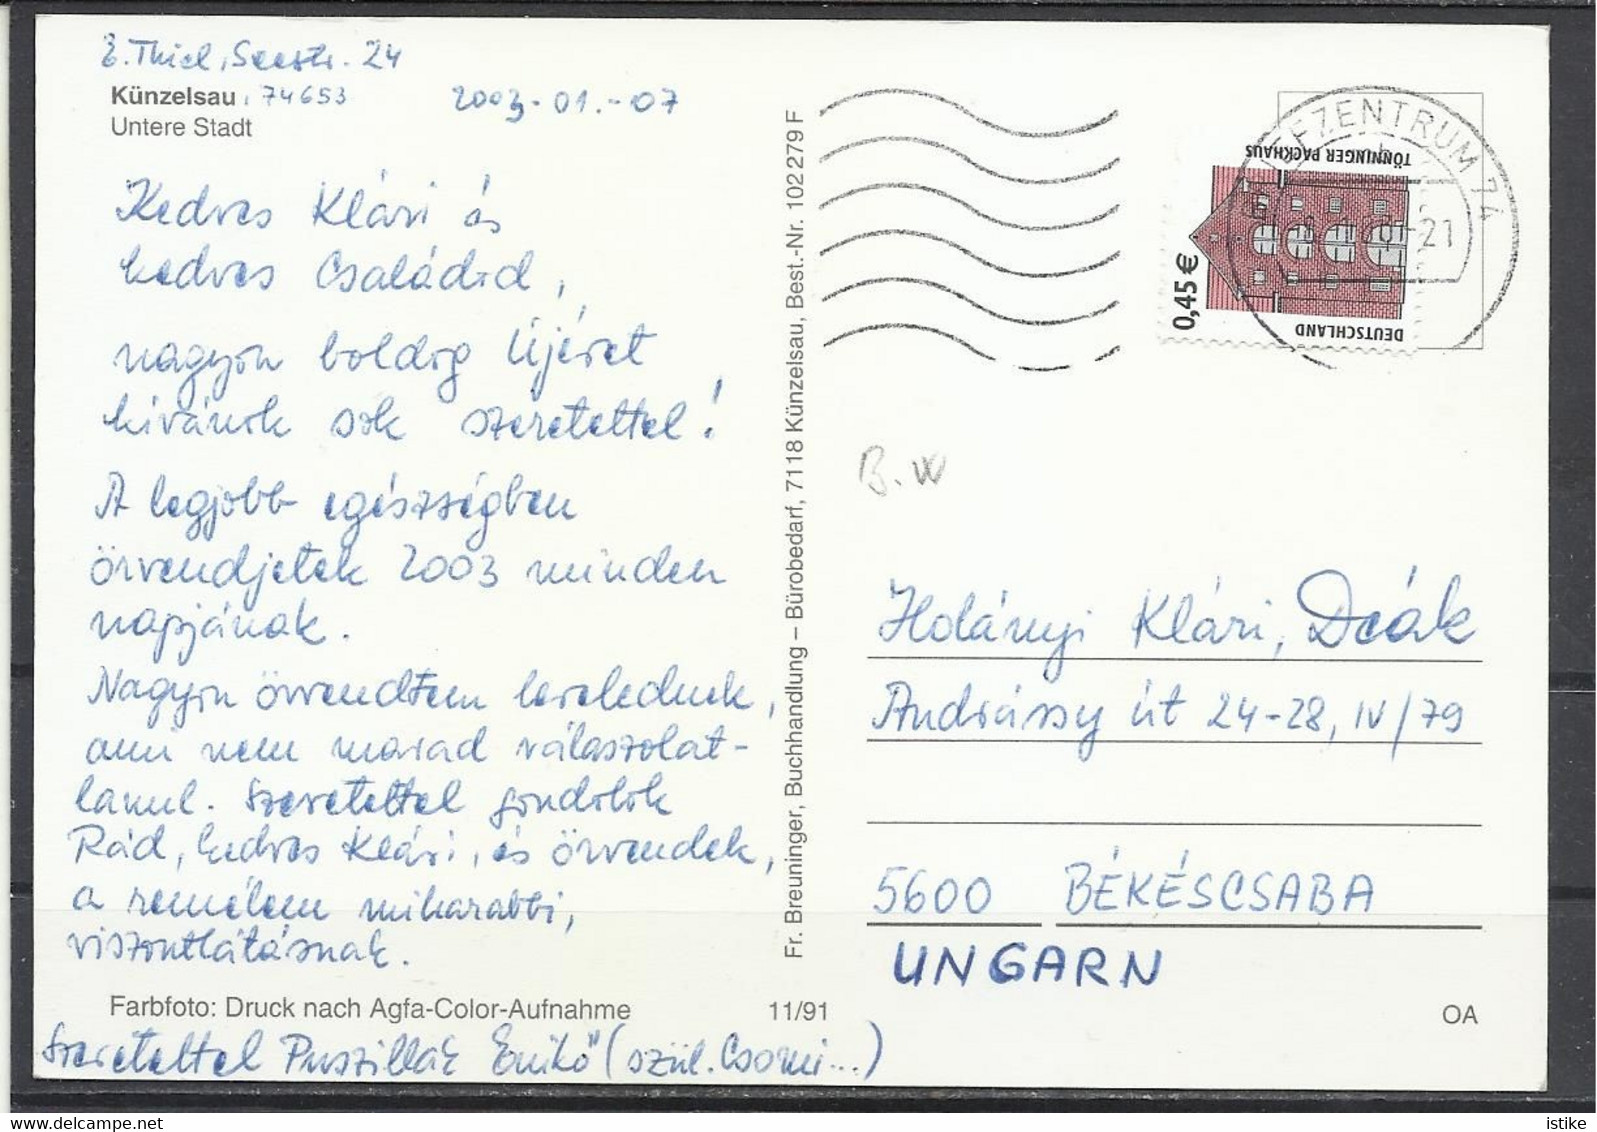 E. Thiel, Seestr. 24
Künzelsau, 74653
2003-01.-07
Untere Stadt
Kedves Klári és
kedves Családod,
nagyon boldog Újévet
kívánok sok szeretettel!
A legjobb egészségben
örvendjetek 2003 minden
napjának.
Nagyon örvendtem levelednek,
ami nem marad válaszolat-
lanul. Szeretettel gondolok
Rád, kedves Klári, és örvendek,
a remélem miharabbi,
viszontlátásnak.
Farbfoto: Druck nach Agfa-Color-Aufnahme
11/91
Szeretettel Puszillak Enikő (szül. Csomi...)
Fr. Breuninger, Buchhandlung – Bürobedarf, 7118 Künzelsau, Best.-Nr. 102 279 F
ZENTRUM 74
21
TÖNNINGER PACKHAUS
0,45 €
DEUTSCHLAND
B.W
Holányi Klári, Deák
Andrássy út 24-28, IV/79
5600 BÉKÉSCSABA
UNGARN
OA
istike